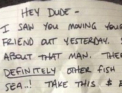 HEY DUDE -
I SAW YOU MOVING YOUR
FRIEND OUT YESTERDAY.
ABOUT THAT MAN. THE
DEFINITELY OTHER FISH
SEA..! TAKE THIS $